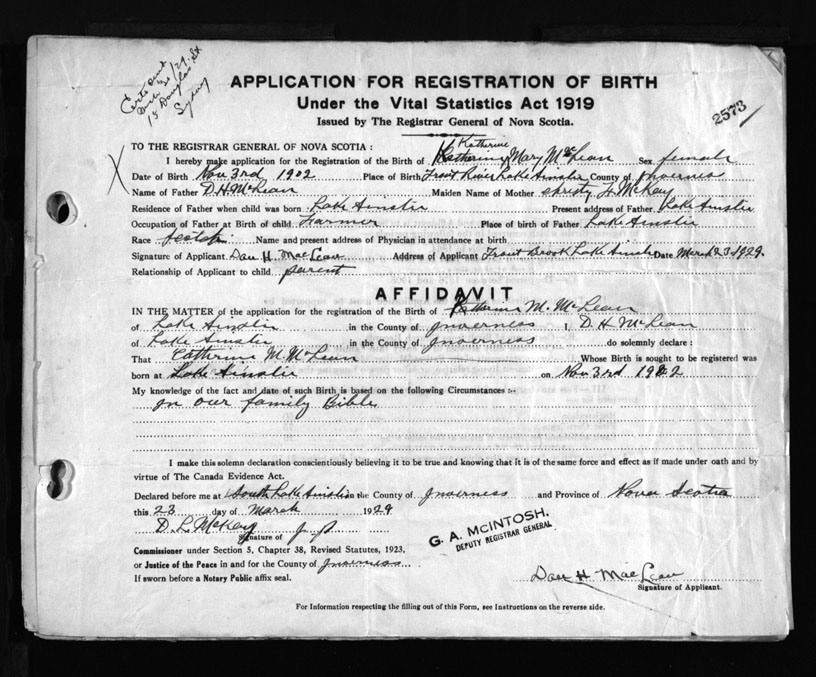 Certs out
15 Douglas St
Sydney
APPLICATION FOR REGISTRATION OF BIRTH
Under the Vital Statistics Act 1919
Issued by The Registrar General of Nova Scotia.
2573
TO THE REGISTRAR GENERAL OF NOVA SCOTIA :
Katherine
I hereby make application for the Registration of the Birth of Katherine Mary McLean Sex female
Date of Birth Nov 3rd 1902 Place of Birth Trout River Lake Ainslie County of Inverness
Name of Father D. H. McLean Maiden Name of Mother Christy H McKay
Residence of Father when child was born Lake Ainslie Present address of Father Lake Ainslie
Occupation of Father at Birth of child Farmer Place of birth of Father Lake Ainslie
Race Scotch Name and present address of Physician in attendance at birth
Signature of Applicant Dan H. MacLean Address of Applicant Trout Brook Lake Ainslie Date March 23 1929.
Relationship of Applicant to child parent
AFFIDAVIT
IN THE MATTER of the application for the registration of the Birth of Katherine M. McLean
of Lake Ainslie in the County of Inverness I, D. H McLean
of Lake Ainslie in the County of Inverness do solemnly declare :
That Catherine M. McLean Whose Birth is sought to be registered was
born at Lake Ainslie on Nov 3rd 1902
My knowledge of the fact and date of such Birth is based on the following Circumstances :-
In our family Bible
I make this solemn declaration conscientiously believing it to be true and knowing that it is of the same force and effect as if made under oath and by
virtue of The Canada Evidence Act.
Declared before me at South Lake Ainslie in the County of Inverness and Province of Nova Scotia
this 23 day of March 1929
D. L McKay J. P.
Signature of
G. A. McINTOSH.
DEPUTY REGISTRAR GENERAL
Commissioner under Section 5, Chapter 38, Revised Statutes, 1923,
or Justice of the Peace in and for the County of Inverness
If sworn before a Notary Public affix seal.
Dan H. MacLean
Signature of Applicant.
For Information respecting the filling out of this Form, see Instructions on the reverse side.